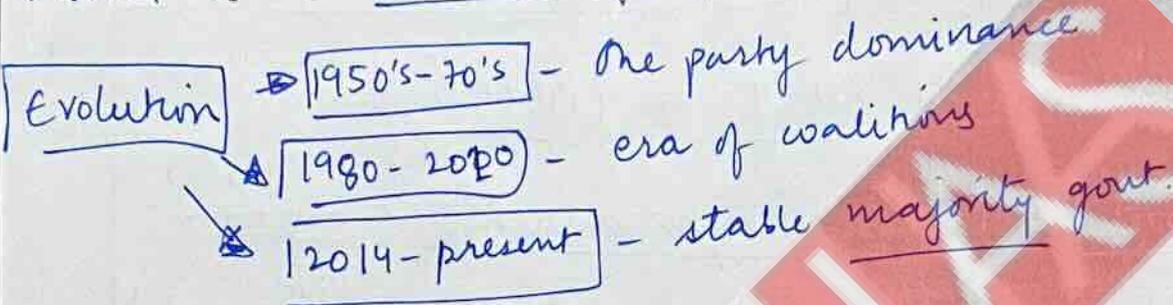 Evolution
1950's-70's - One party dominance
1980-2020 - era of coalitions
2014-present - stable majority govt
IAS